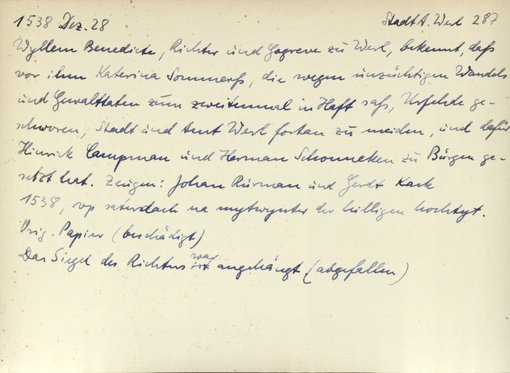 1538 Dez. 28 Stadt A. Werl 287
Wyllem Benedicte, Richter und Gogreve zu Werl, bekennt, daß
vor ihm Katerina Sommers, die wegen unzüchtigen Wandels
und Gewalttaten zum zweitenmal in Haft saß, Urfehde ge-
schworen, Stadt und Amt Werl fortan zu meiden, und dafür
Hinrick Campman und Herman Schonneken zu Bürgen ge-
setzt hat. Zeugen: Johan Rurman und Gerdt Kark
1538, up saterdach na mytwynter der hilligen hochtyt.
Orig. Papier (beschädigt)
Das Siegel des Richters war angehängt (abgefallen)